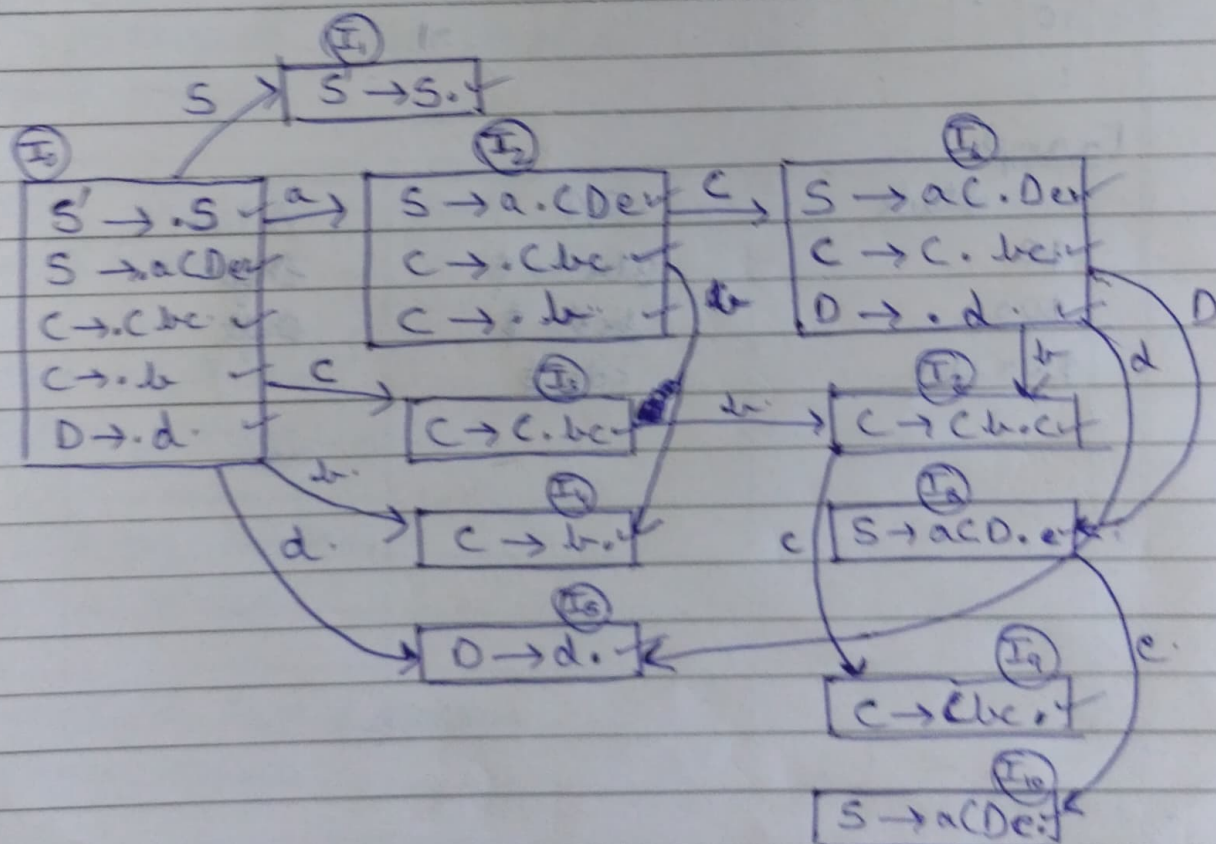 I₁
S' → S.
S
I₀
I₂
I₆
S' → .S
S → .aCDe
C → .Cbc
C → .b
D → .d
a
S → a.CDe
C → .Cbc
C → .b
C
S → aC.De
C → C.bc
D → .d
b
D
b
d
C
I₃
C → C.bc
b
I₇
C → Cb.c
b
I₄
C → b.
I₈
S → aCD.e
d
c
I₅
D → d.
e
I₉
C → Cbc.
I₁₀
S → aCDe.